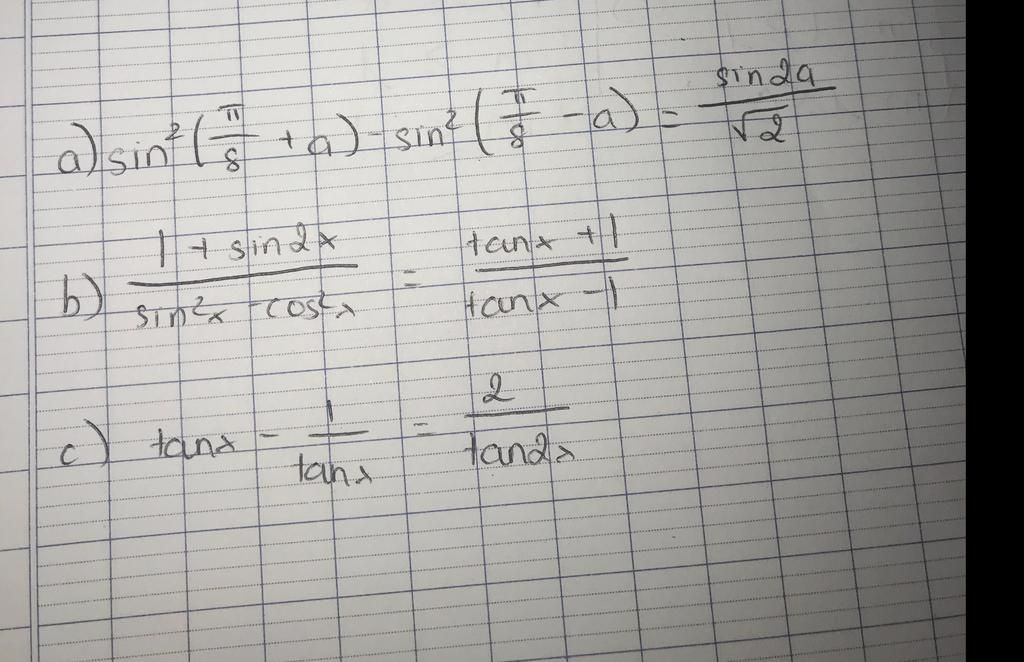 a) sin²(π/8 + a) - sin²(π/8 - a) = sin2a/√2
b) (1 + sin2x)/(sin²x - cos²x) = (tanx + 1)/(tanx - 1)
c) tanx - 1/tanx = 2/tan2x